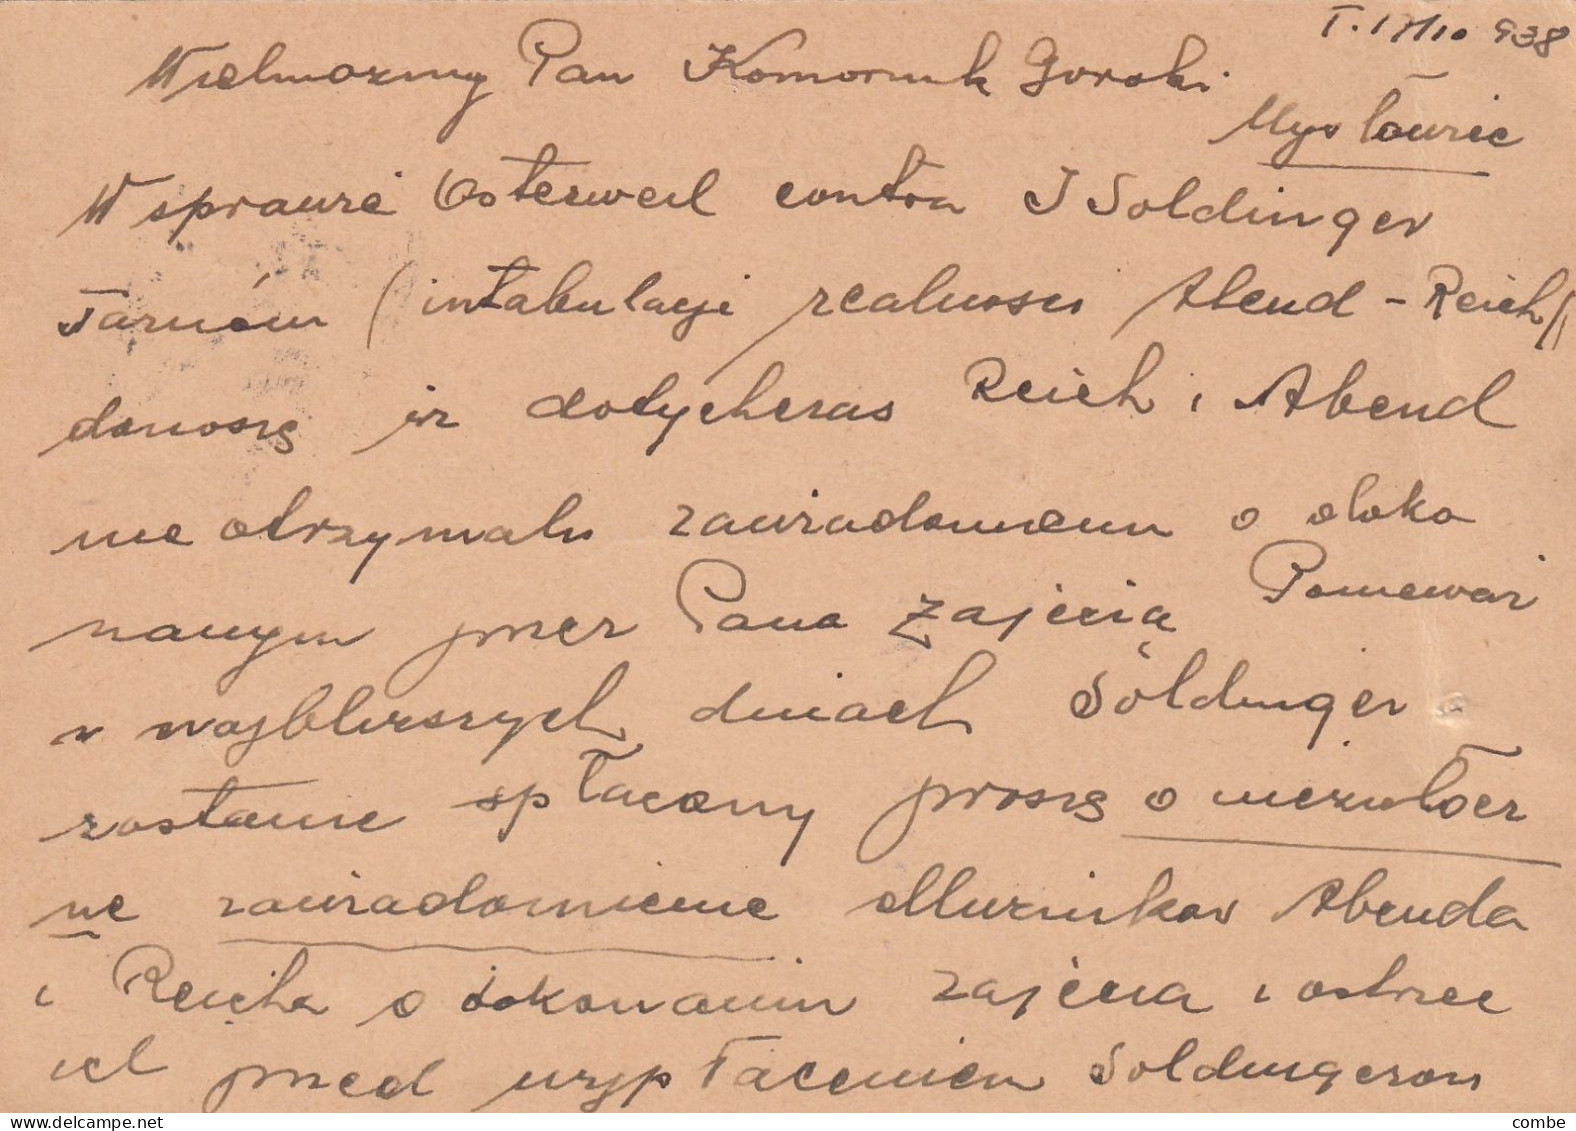 T. 17/10 938
Wielmożny Pan Komornik Gorski
Mysłowice
W sprawie Osterweil contra J Soldinger
Tarnów (intabulacji realnosci Abend - Reich)
donoszę iż dotychczas Reich i Abend
nie otrzymali zawiadomienia o doko
nanym przez Pana zajęcia Ponieważ
w najbliższych dniach Söldinger
zostanie spłacony proszę o niezwłocz
ne zawiadomienie dłużnikow Abenda
i Reicha o dokonaniu zajęcia i ostrzec
ich przed wypłaceniem Soldingerowi
combe
© delcampe.net